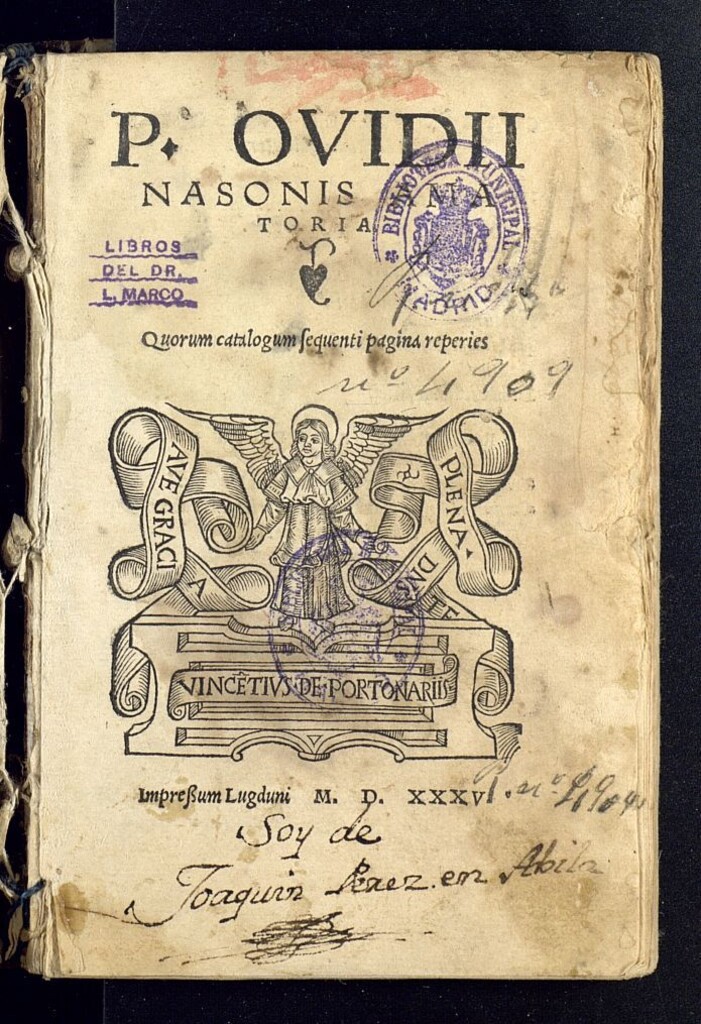 P. OVIDII
NASONIS AMA
TORIA
BIBLIOTECA MUNICIPAL
MADRID
LIBROS
DEL DR.
L. MARCO
Quorum catalogum ſequenti pagina reperies
nº 4909
AVE GRACI
A
PLENA.
DNS
TE
VINCẼTIVS·DE·PORTONARIIS
Impreßum Lugduni M. D. XXXVI.
Soy de
Joaquin Perez en Abila